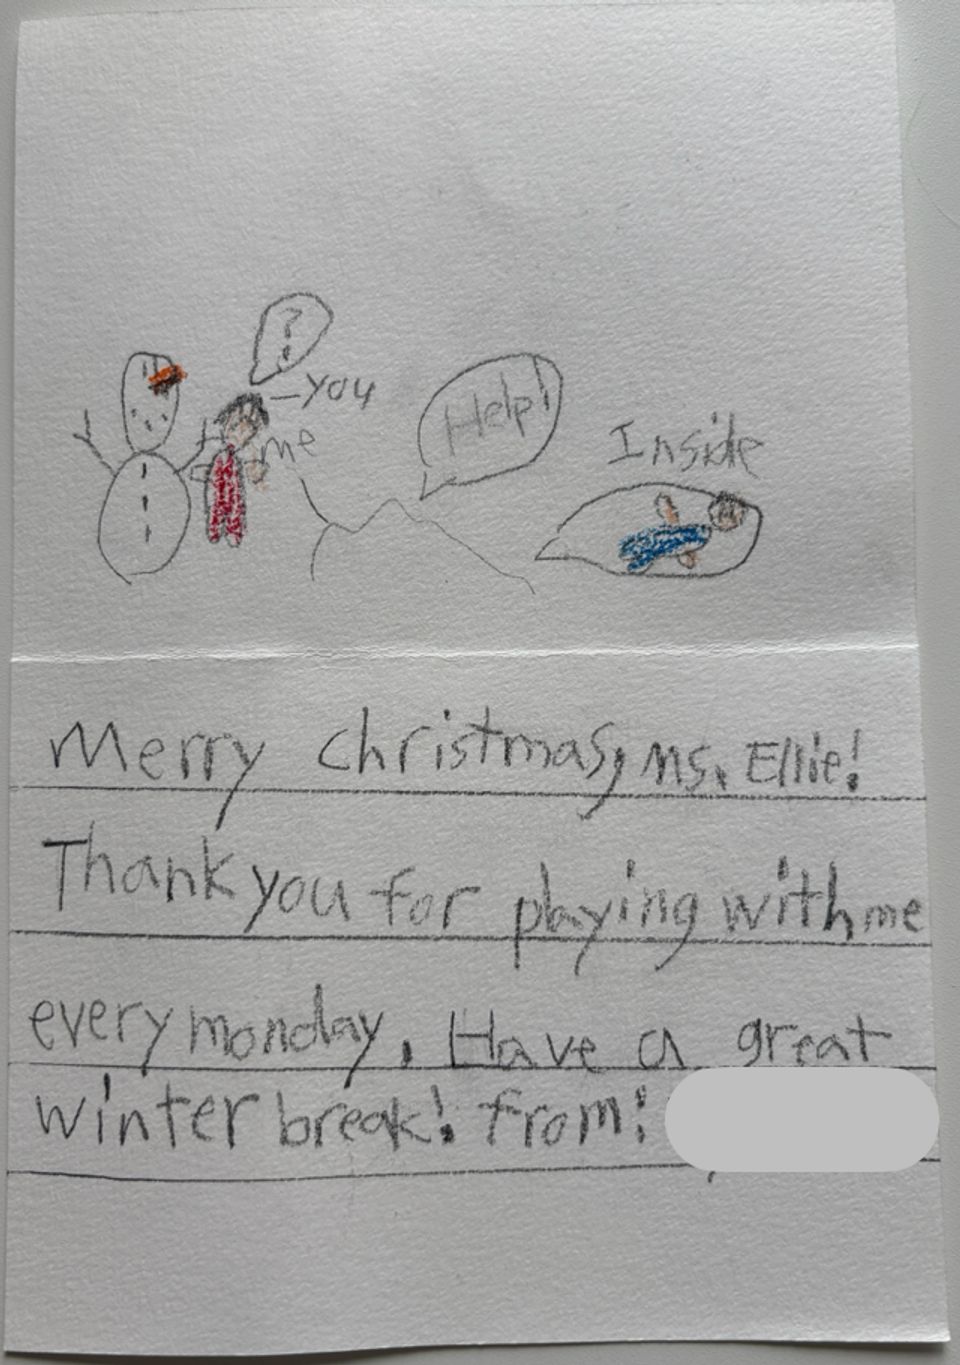 ?
you
me
Help!
Inside
Merry christmas, Ms. Ellie!
Thank you for playing with me
every monday. Have a great
winter break! from: